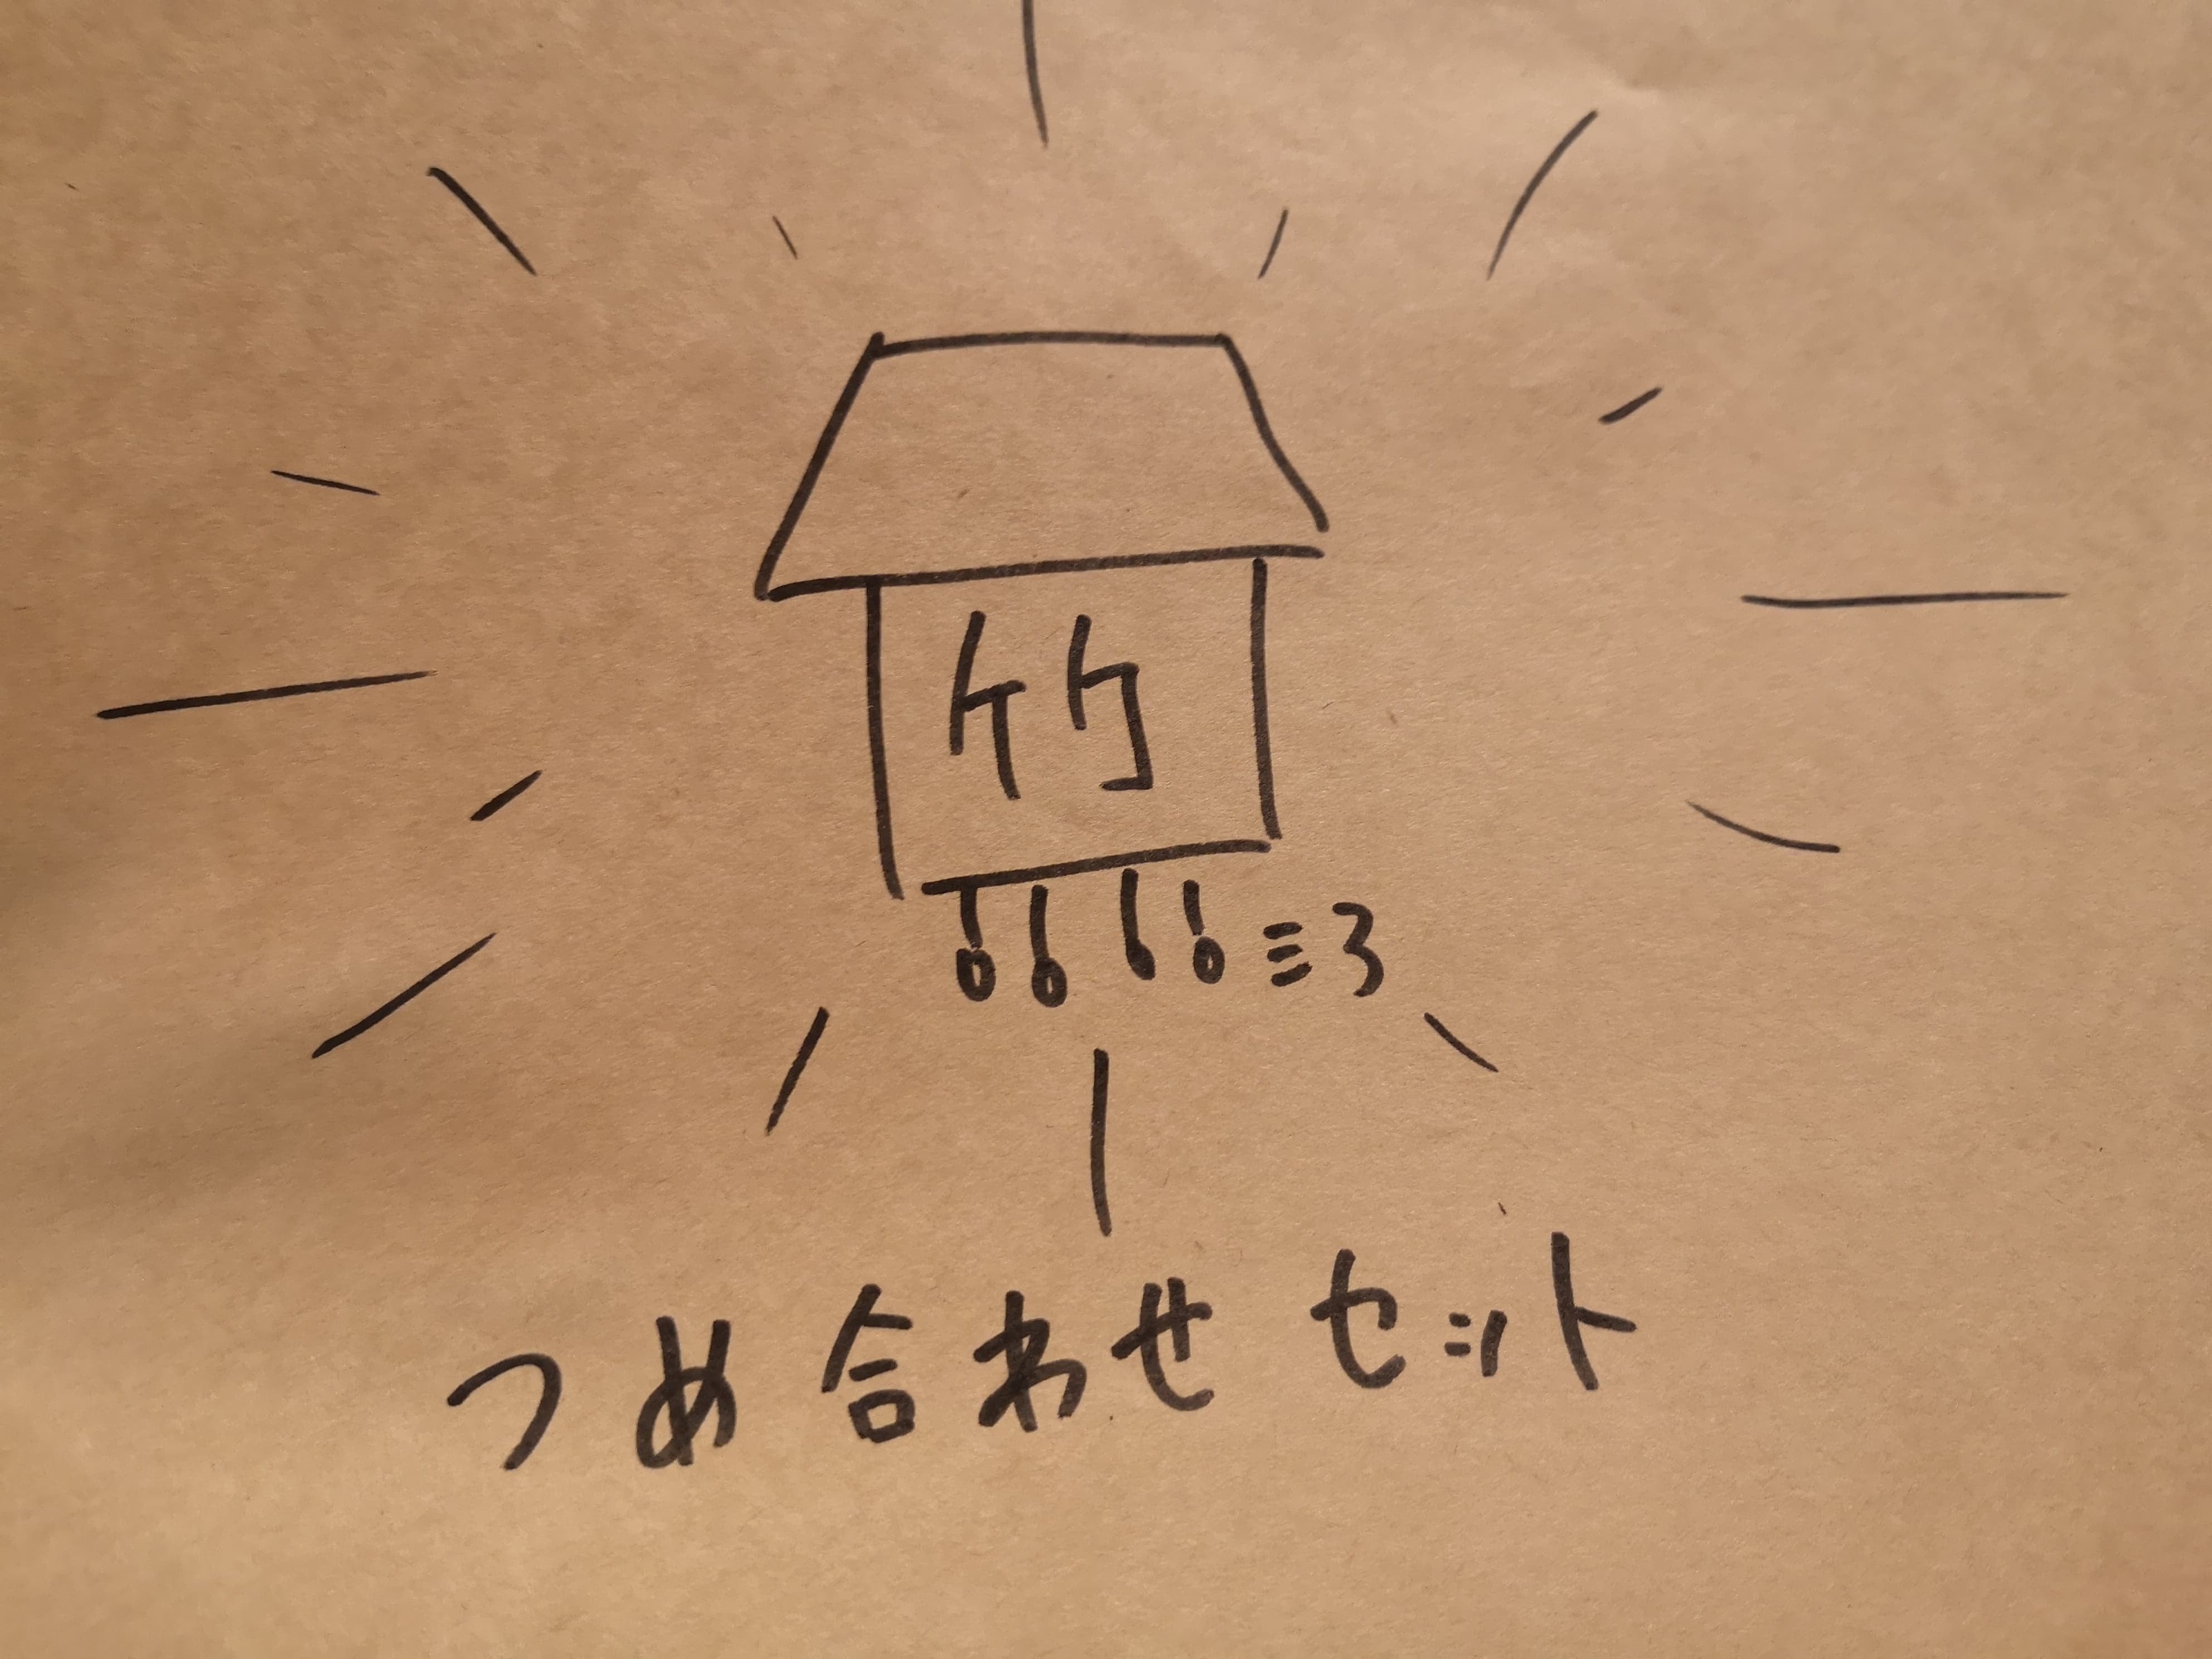 竹
つめ合わせセット